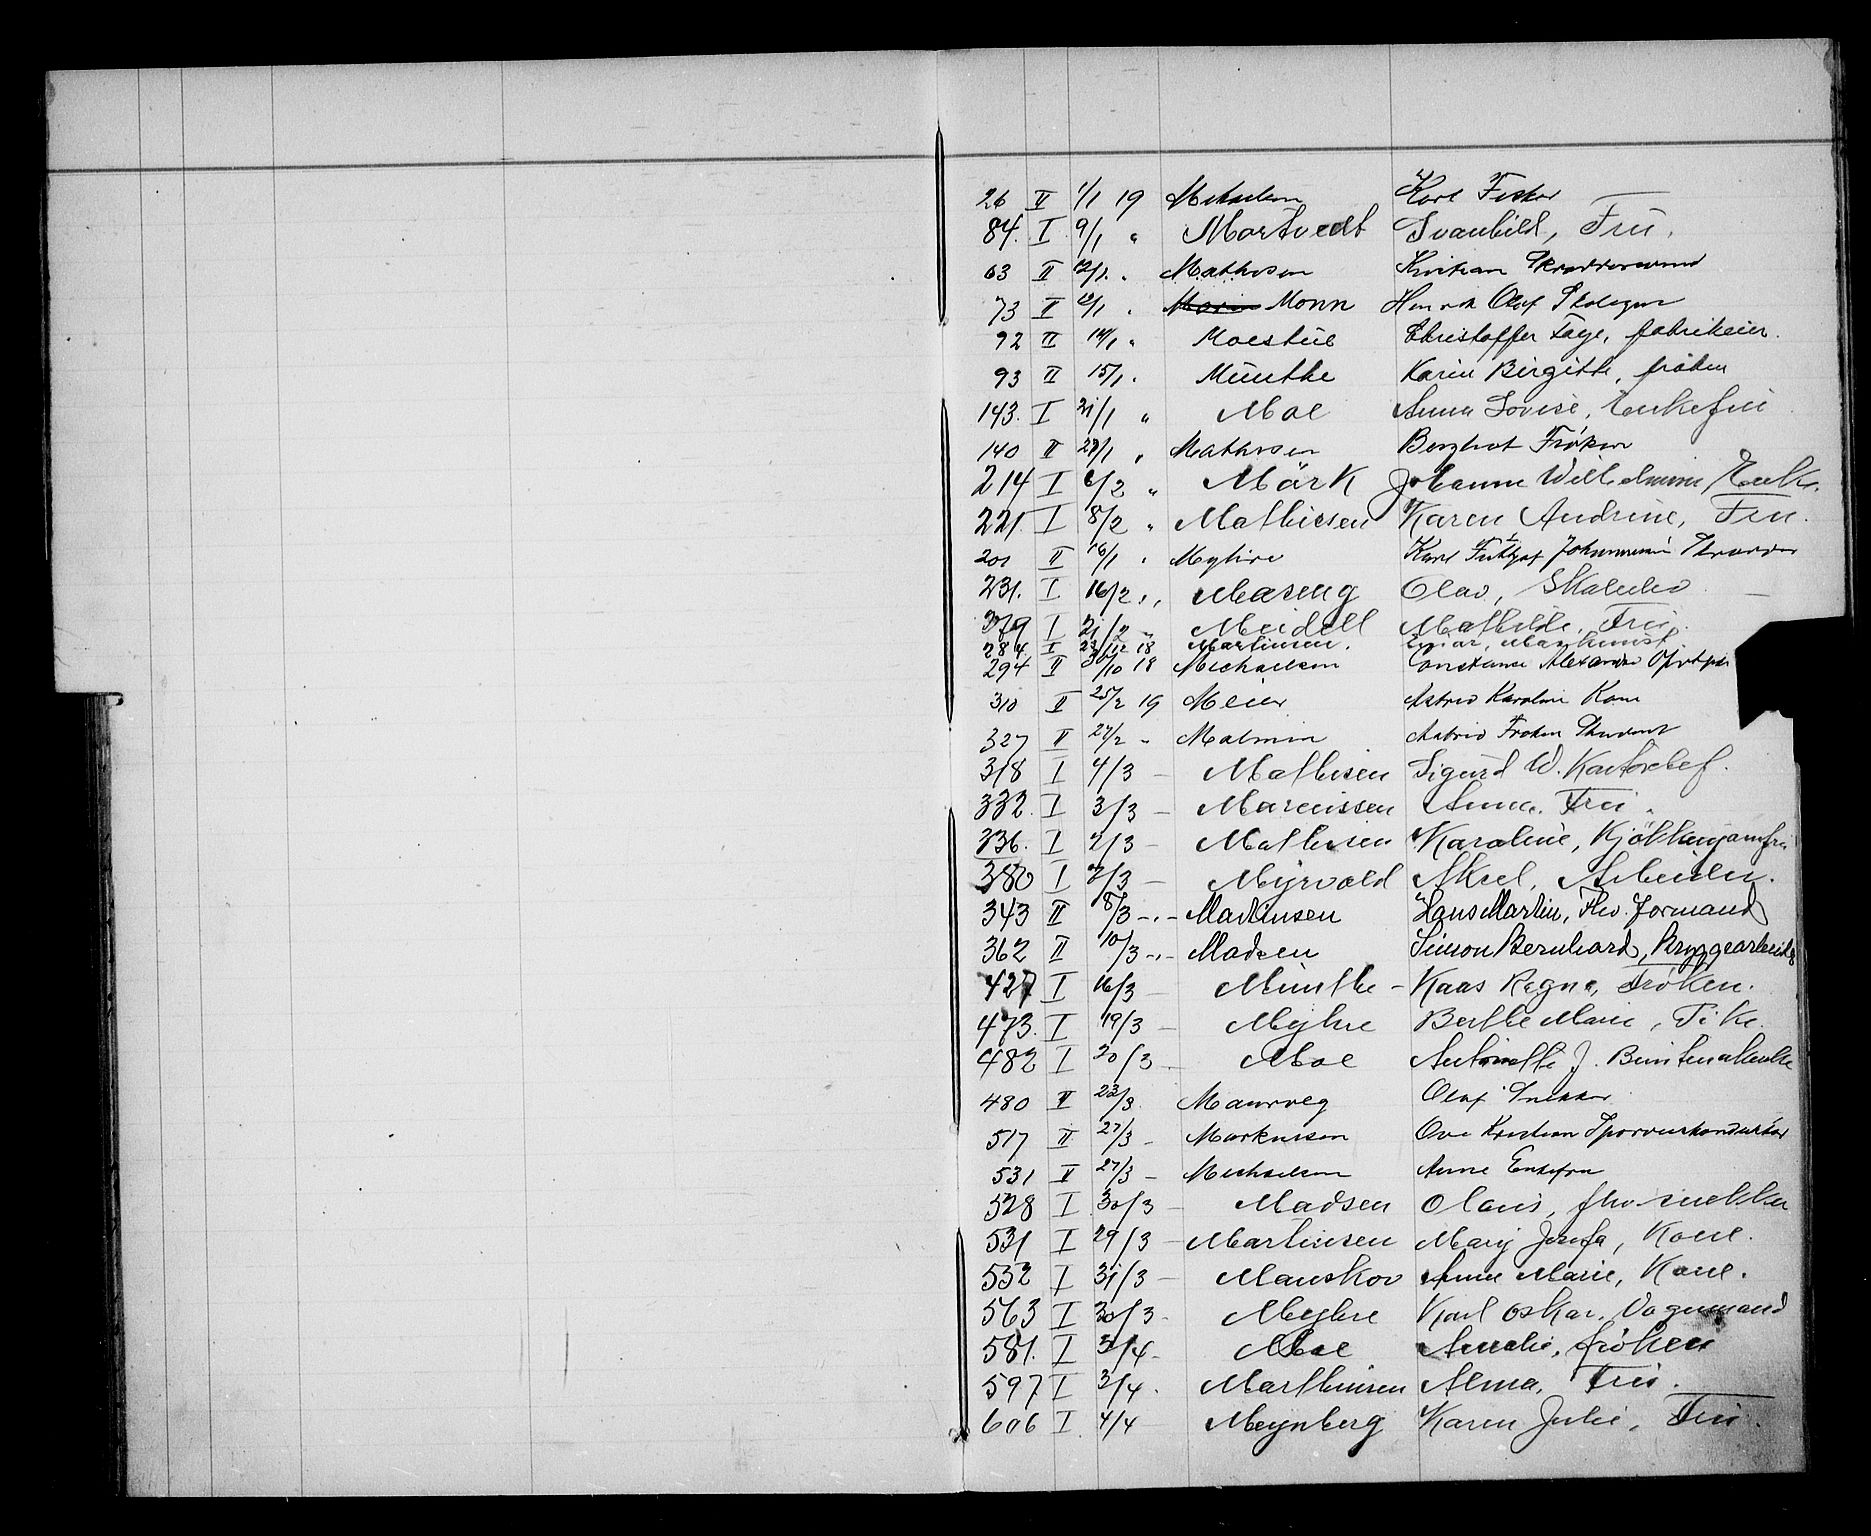 26 II 1/1 19 Mikaelsen Karl Fisker
84. I 9/1 " Mortvedt Svanhild, Frü.
63 II 12/1 " Mathisen Kristian
73 II 12/1 " Monn Henrik Olaf
92 II 14/1 " Moestüe Christoffer Fage, fabrikeier.
93 II 15/1 " Münthe Karin Birgitte, frøken
143. I 21/1 " Moe Anna Lovise, Enkefrü
140 II 23/1 " Mathisen Bergliot Frøken
214 I 6/2 " Märk Johanne Wilhelmine Enke.
221. I 8/2 " Mathiesen Karen Andrine, Frü.
201 II 16/1 " Myhre Karl Fritjof
231. I 16/2 " Maseng Olav,
379 I 21/2 " Meidell Mathilde, Frü.
284. I 23/12 18 Martinsen. Einar, Maskinist
294 II 30/10 18 Michaelsen Constance
310 II 25/2 19 Meier Astrid Karoline Kone
327 II 27/2 - Malmin Astrid Frøken Student
318 I 4/3 - Mathisen Sigurd W. Kontorchef.
332. I 3/3 - Marcussen Anna. Frü.
336. I 2/3 - Mathisen Karoline, Kjökkenjomfru
380 I 2/3 - Myrvold Aksel, Arbeider.
343 II 8/3 -"- Martinsen Hans Martin, Fhv. Formand
362 II 10/3 -"- Madsen Simon Bernhard, Bryggearbeider
427 I 16/3 - Münthe - Kaas Ragna, Frøken.
473. I 19/3 - Myhre Berthe Marie,
482 I 20/3 - Moe Antonette J.
480 II 23/3. Maurveg Olaf Snekker
517 II 27/3 - Markussen Ove Kristian Sporveiskonduktør
531 II 27/3 - Michaelsen Anne Enkefru
528 I 30/3 - Madsen Olaus, fhv snekker
531 I 29/3 - Martinsen Mary Josefa, Kone.
532 I 31/3 - Manskov Anne Marie, Kone.
563 I 30/3 - Myhre Karl Oskar. Vognmand
581. I 3/4 - Moe Amalie, frøken
597 I 3/4. Marthinsen Alma, Frü.
606 I. 4/4 Meynberg Karen Julie, Frü.